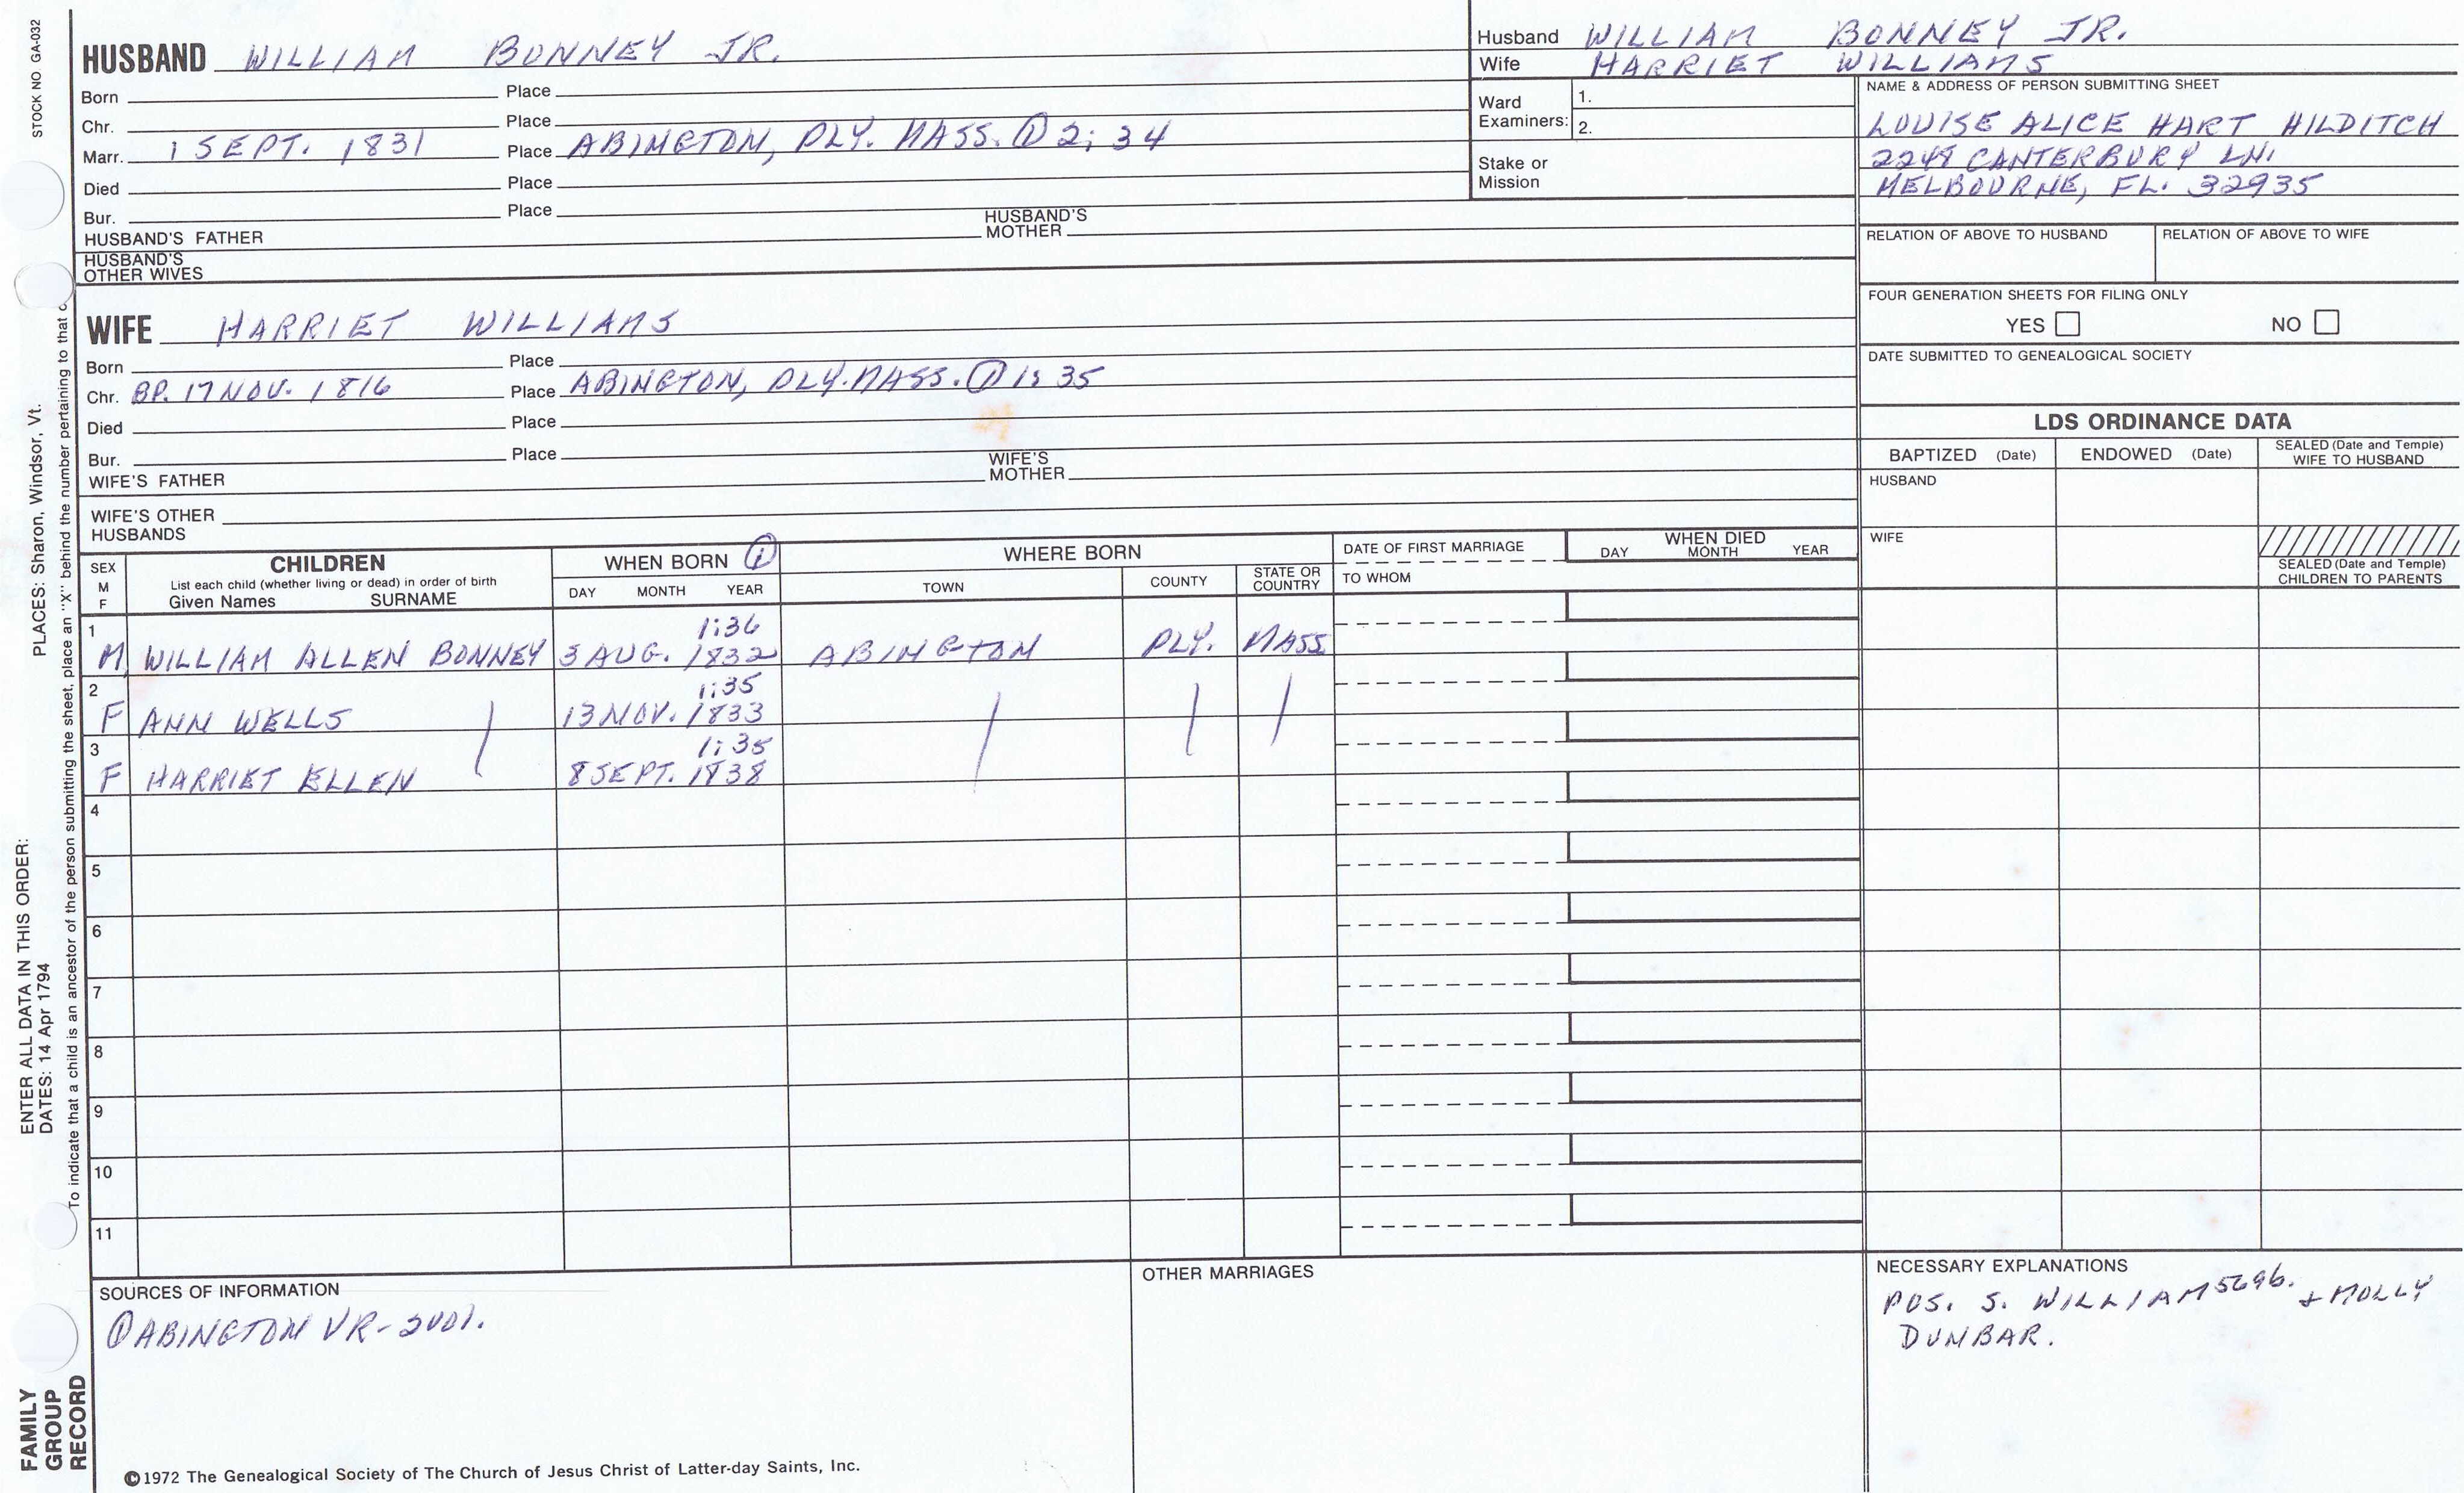 STOCK NO. GA-032
HUSBAND WILLIAM BONNEY JR.
Born Place
Chr. Place
Marr. 1 SEPT. 1831 Place ABINGTON, PLY. MASS. ① 2; 34
Died Place
Bur. Place
HUSBAND'S FATHER HUSBAND'S MOTHER
HUSBAND'S OTHER WIVES
Husband WILLIAM BONNEY JR.
Wife HARRIET WILLIAMS
Ward Examiners: 1.
2.
Stake or Mission
NAME & ADDRESS OF PERSON SUBMITTING SHEET
LOUISE ALICE HART HILDITCH
2248 CANTERBURY LN.
MELBOURNE, FL. 32935
RELATION OF ABOVE TO HUSBAND RELATION OF ABOVE TO WIFE
FOUR GENERATION SHEETS FOR FILING ONLY
YES NO
DATE SUBMITTED TO GENEALOGICAL SOCIETY
WIFE HARRIET WILLIAMS
Born Place
Chr. BP. 17 NOV. 1816 Place ABINGTON, PLY. MASS. ① 1; 35
Died Place
Bur. Place
WIFE'S FATHER WIFE'S MOTHER
WIFE'S OTHER HUSBANDS
LDS ORDINANCE DATA
BAPTIZED (Date) ENDOWED (Date) SEALED (Date and Temple) WIFE TO HUSBAND
HUSBAND
WIFE
SEALED (Date and Temple) CHILDREN TO PARENTS
SEX M F
CHILDREN
List each child (whether living or dead) in order of birth
Given Names SURNAME
WHEN BORN ①
DAY MONTH YEAR
WHERE BORN
TOWN COUNTY STATE OR COUNTRY
DATE OF FIRST MARRIAGE
TO WHOM
WHEN DIED
DAY MONTH YEAR
1 1;36
M WILLIAM ALLEN BONNEY 3 AUG. 1832 ABINGTON PLY. MASS
2 1;35
F ANN WELLS 13 NOV. 1833
3 1;35
F HARRIET ELLEN 8 SEPT. 1838
4
5
6
7
8
9
10
11
SOURCES OF INFORMATION
① ABINGTON VR-2VOL.
OTHER MARRIAGES
NECESSARY EXPLANATIONS
POS. S. WILLIAM 5696. + MOLLY
DUNBAR.
©1972 The Genealogical Society of The Church of Jesus Christ of Latter-day Saints, Inc.
FAMILY
GROUP
RECORD
ENTER ALL DATA IN THIS ORDER:
DATES: 14 Apr 1794 PLACES: Sharon, Windsor, Vt.
To indicate that a child is an ancestor of the person submitting the sheet, place an "X" behind the number pertaining to that c